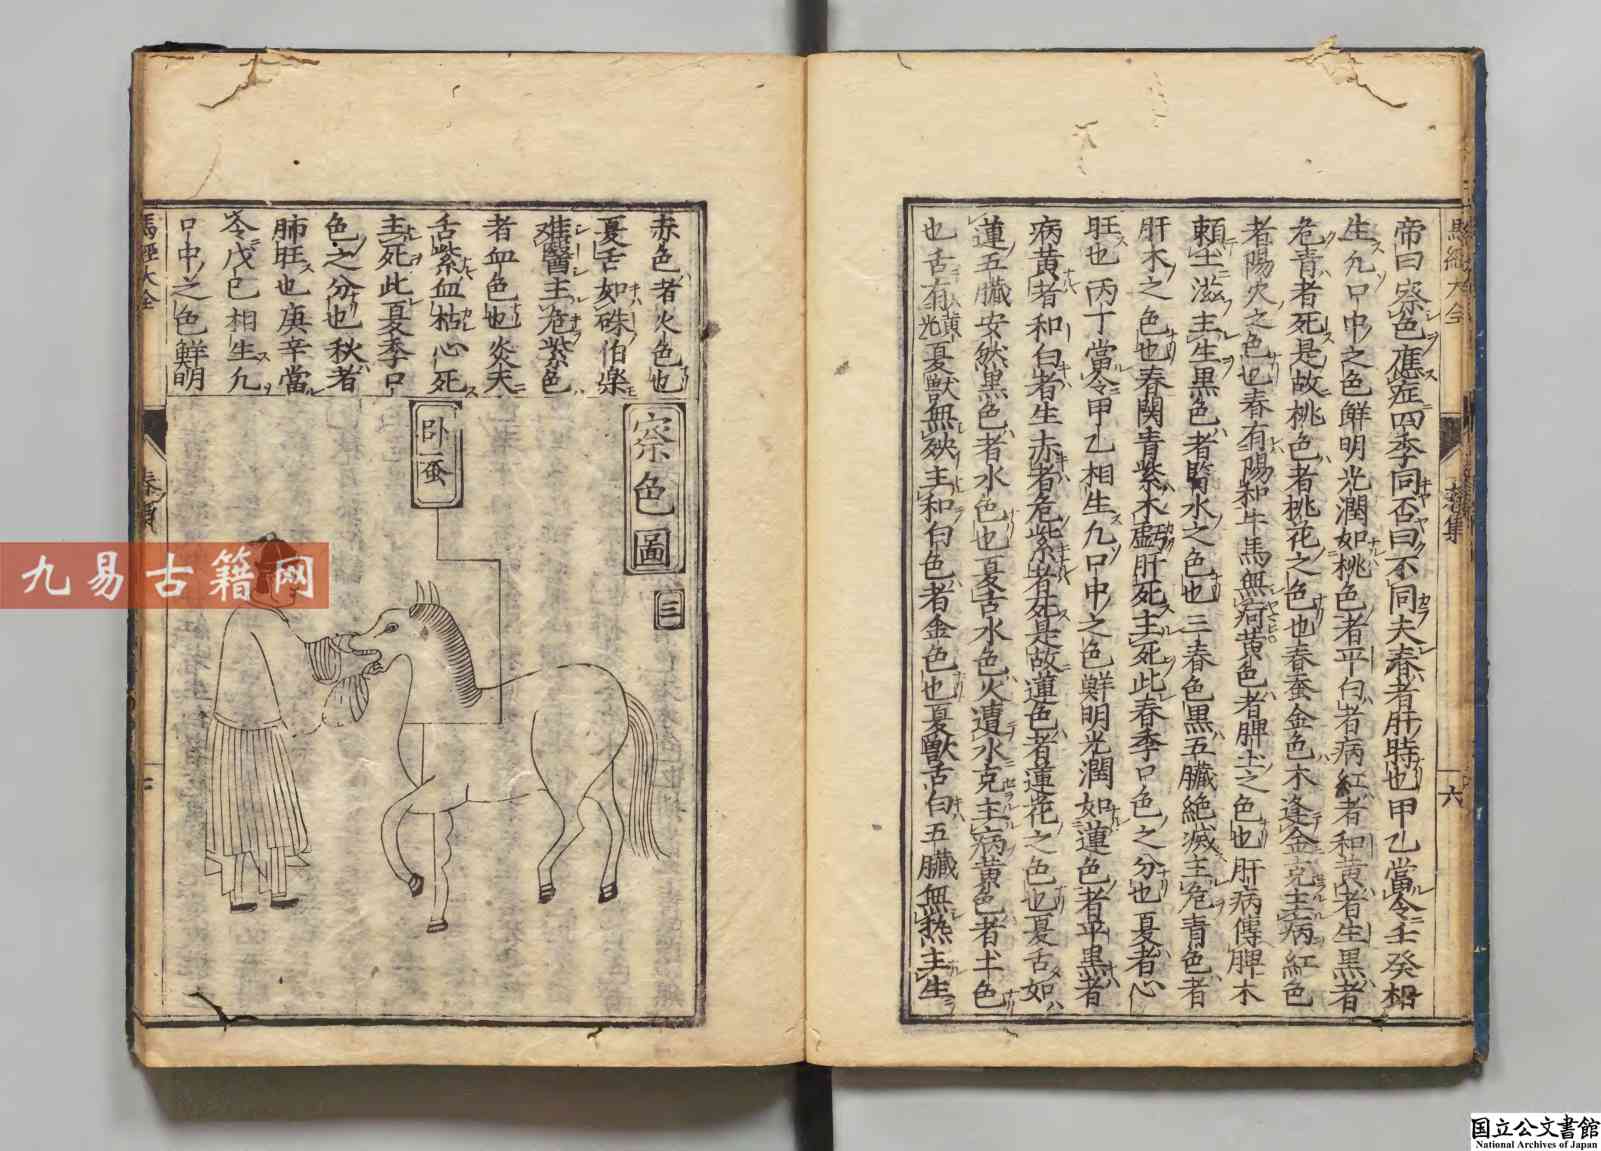 帝曰察色應症四季同否曰不同夫春者肝時也甲乙當令壬癸相
生凢口中之色鮮明光潤如桃色者平白者病紅者和黄者生黒者
危青者死是故桃色者桃花之色也春蚕金色木逢金克主病紅色
者陽火之色也春有陽和牛馬無疴黄色者脾土之色也肝病傳脾木
頼土滋主生黒色者腎水之色也三春色黒五臓絶滅主危青色者
肝木之色也春関青紫木虧肝死主死此春季口色之分也夏者心
旺也丙丁當令甲乙相生凢口中之色鮮明光潤如蓮色者平黒者
病黄者和白者生赤者危紫者死是故蓮色者蓮花之色也夏舌如
蓮五臓安然黒色者水色也夏古水色火遭水克主病黄色者土色
也舌有黄光夏獣無殃主和白色者金色也夏獣舌白五臓無熱主生
六
赤色者火色也
夏舌如硃伯樂
難醫主危紫色
者血色也炎天
舌紫血枯心死
主死此夏季口
色之分也秋者
肺旺也庚辛當
令戊巳相生凢
口中之色鮮明
察色圖
三
卧蚕
馬經大全
春
九易古籍网
国立公文書館
National Archives of Japan